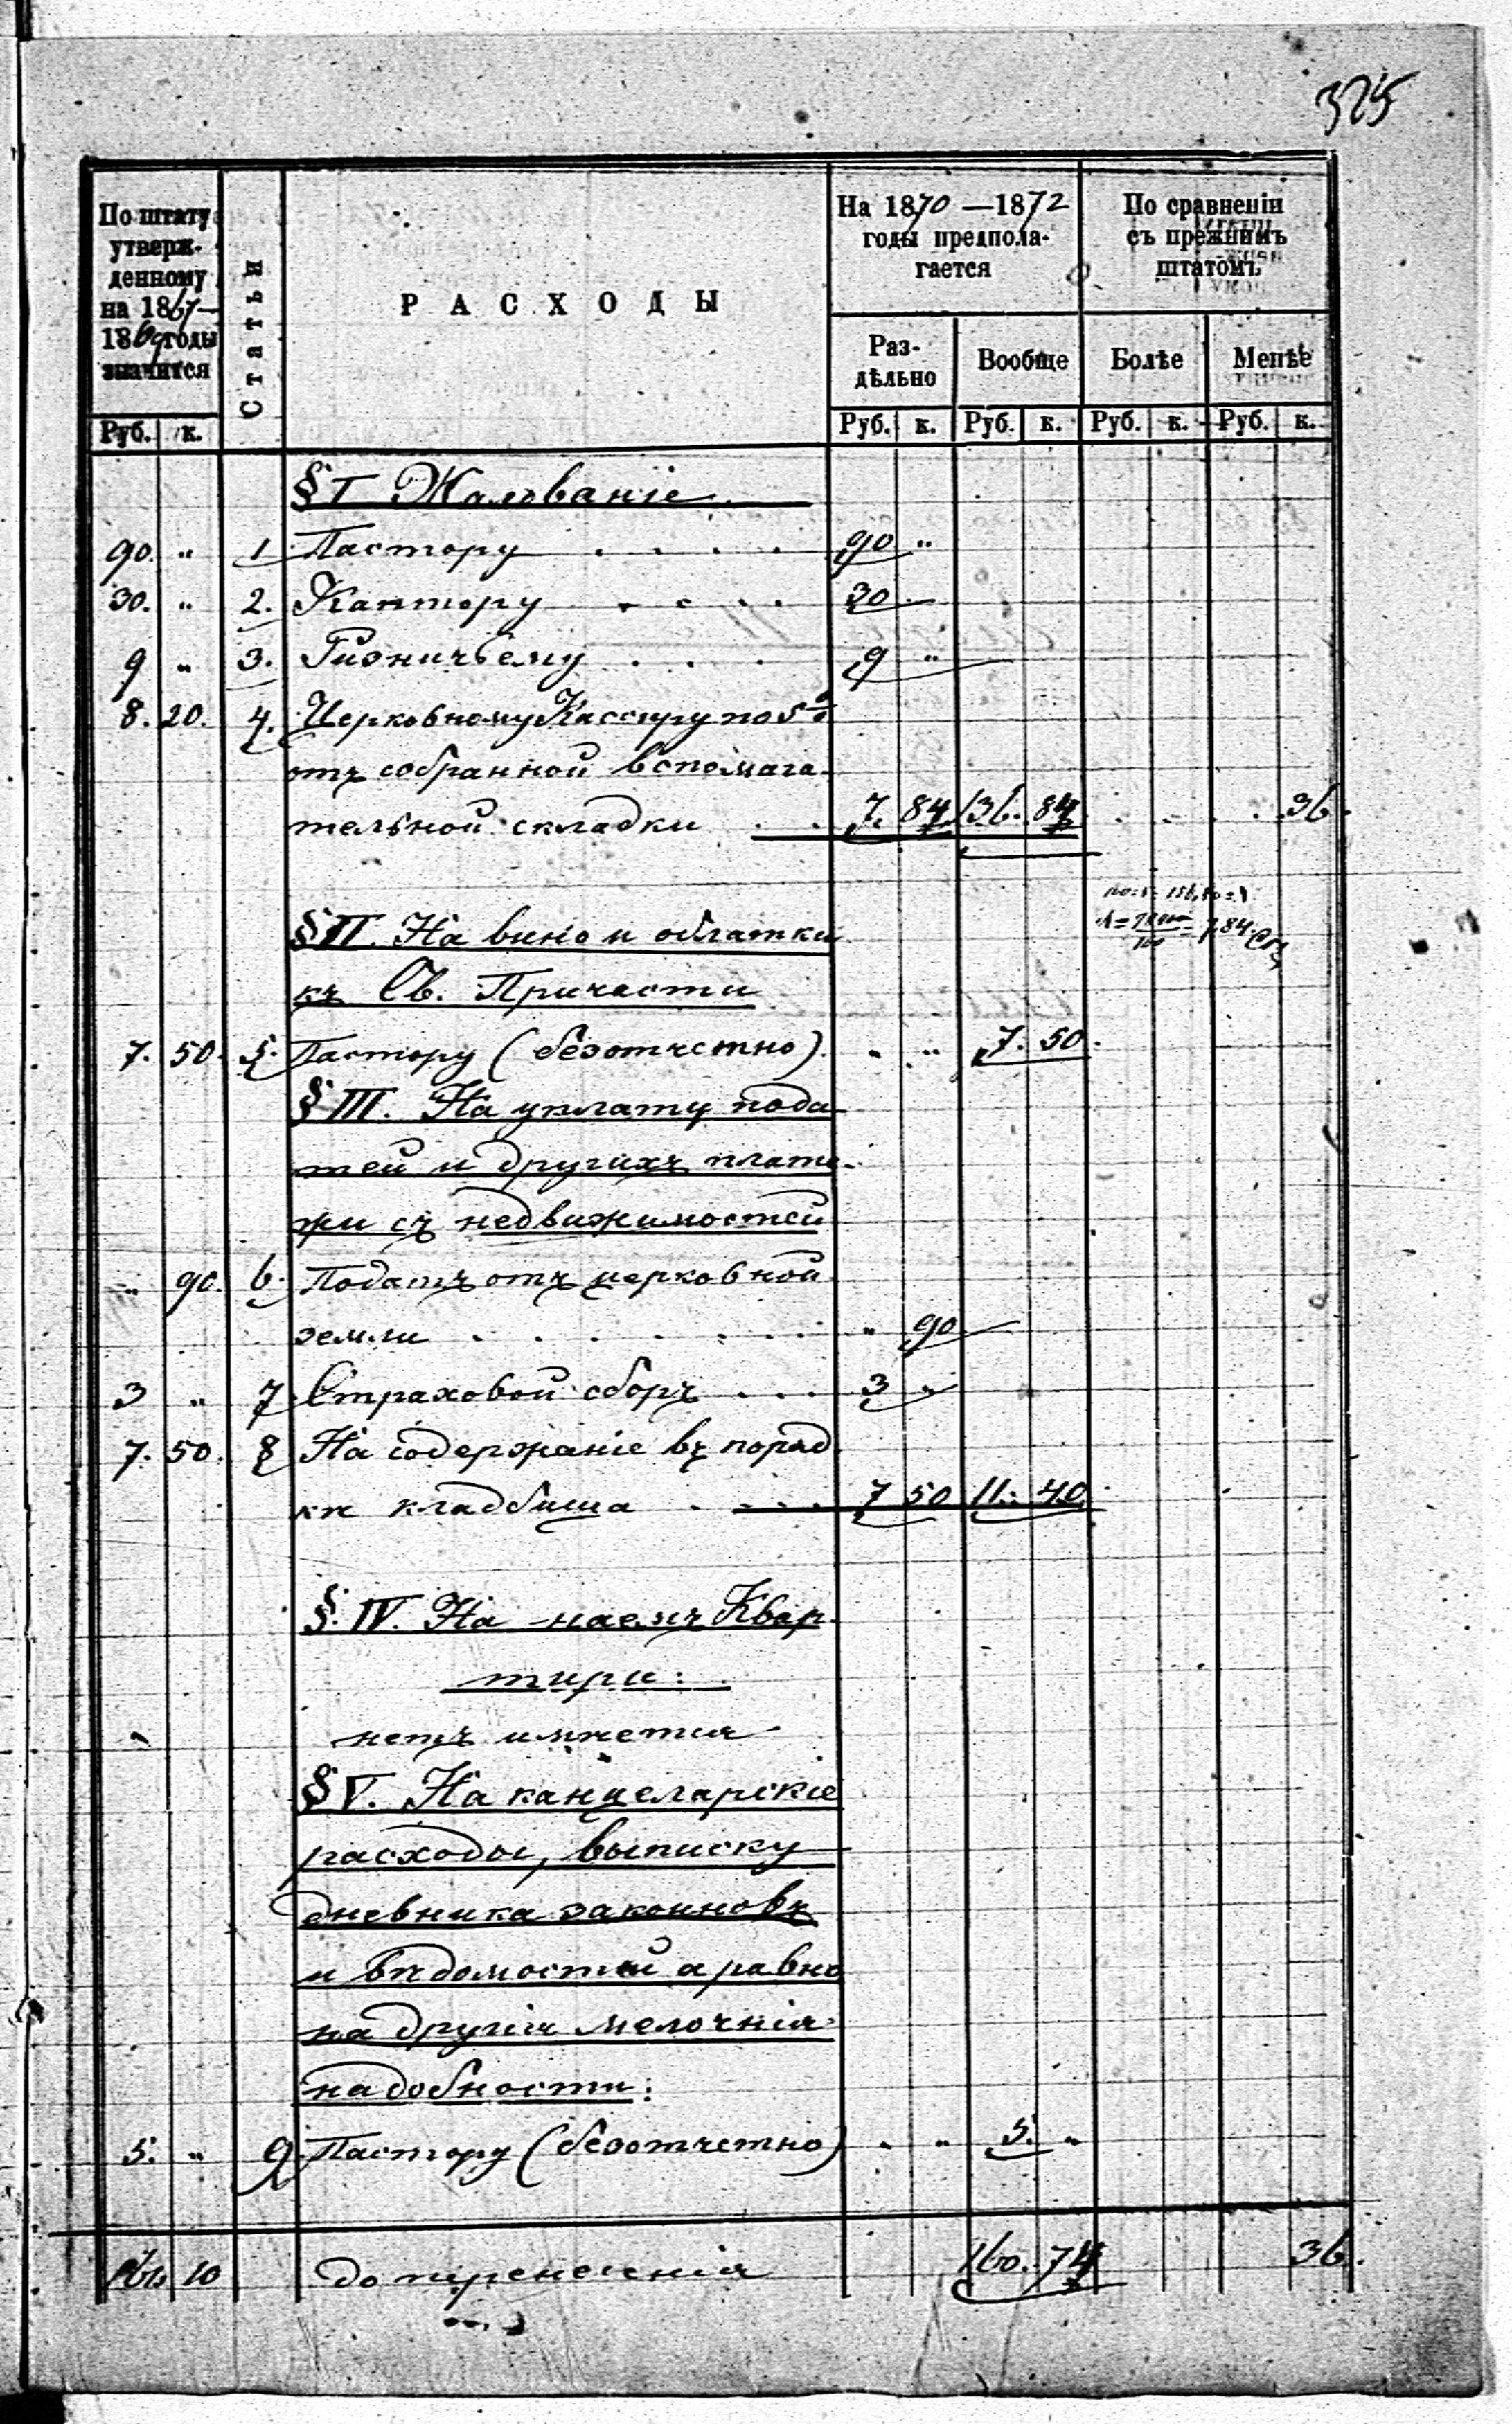 325
По штату утверж- денному на 1867— 1869 годы значится
Статьи
РАСХОДЫ
На 1870 —1872 годы предпола- гается
По сравненiи съ прежнимъ штатомъ
Раз- дѣльно
Вообще
Болѣе
Менѣе
Руб. к.
Руб. к. Руб. к. Руб. к. Руб. к.
§ I Жалованiе
90. „ 1 Пастору . . . . 90 „
30. „ 2. Кантору . . . . 30
9 „ 3. Ризничьему . . . 9 „
8. 20. 4. Церковному Кассиру по 5%
отъ собранной вспомага-
тельной складки . . 7. 84. 136. 84 . . . . 36.
= 7,84
§ II. На вино и облатки
къ Св. Причастi
7. 50. 5. Пастору (безотчетно) „ „ 7. 50.
§ III. На уплату пода
тей и другихъ плате-
жи съ недвижимостей
„ 90. 6. Подать отъ церковной
земли . . . . . . . „ 90
3 „ 7 Страховой сборъ . . . 3 „
7. 50. 8 На содержанiе въ поряд
кѣ кладбища . . . . 7 50 11. 40.
§. IV. На наемъ Квар-
тири:
нетъ имѣется
§ V. На канцеларскiе
расходы, выписку
дневника законновъ
и вѣдомостей а равно
на другiя мелочнiя
надобности:
5. „ 9 Пастору (безотчетно) „ „ 5. „
161. 10 до перенесенiя 160. 74 36.